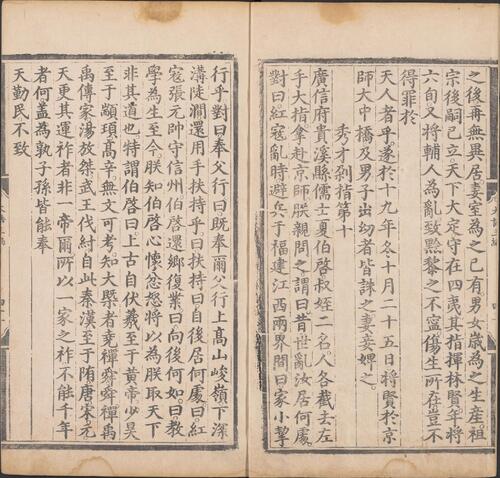 之後再無異居妻室為之已有男女歲為之生產祖
宗後嗣已立天下大定守在四夷其指揮林賢年將
六旬又將輔人為亂致黔黎之不寧傷生所在豈不
得罪於
天人者乎遂於十九年冬十月二十五日將賢於京
師大中橋及男子出幼者皆誅之妻妾婢之
秀才剁指第十
廣信府貴溪縣儒士夏伯啓叔姪二名人各截去左
手大指拿赴京師朕親問之謂曰昔世亂汝居何處
對曰紅寇亂時避兵于福建江西兩界間曰家小挈
行乎對曰奉父行曰既奉爾父行上高山峻嶺下深
溝陡澗還用手扶持乎曰扶持曰自後居何處曰紅
寇張元帥守信州伯啓還鄉復業曰向後何如曰教
學為生至今朕知伯啓心懷忿怒將以為朕取天下
非其道也特謂伯啓曰上古自伏羲至于黃帝少昊
至于顓頊高辛無文可考知大槩者堯禪舜舜禪禹
禹傳家湯放桀武王伐紂自此秦漢至于隋唐宋元
天更其運祚者非一帝爾所以一家之祚不能千年
者何蓋為孰子孫皆能奉
天勤民不致